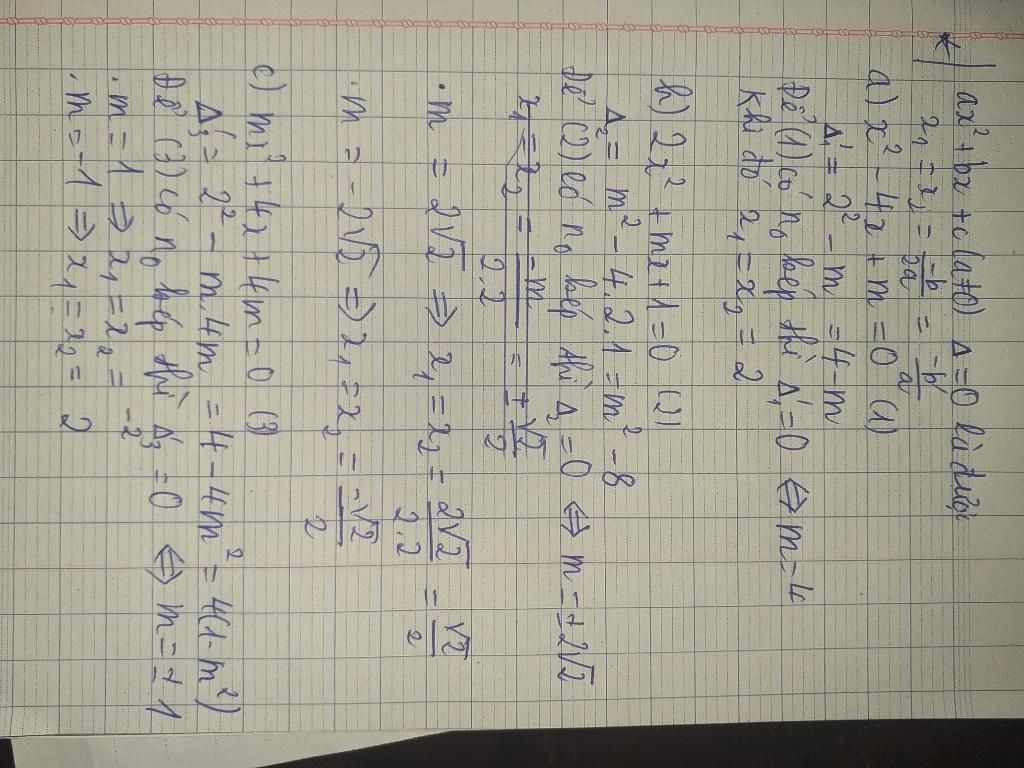 */ ax² + bx + c (a≠0) Δ=0 là được
x₁ = x₂ = -b/2a = -b'/a
a) x² - 4x + m = 0 (1)
Δ'₁ = 2² - m = 4 - m
Để (1) có n₀ kép thì Δ'₁ = 0 ⇔ m = 4
Khi đó x₁ = x₂ = 2
b) 2x² + mx + 1 = 0 (2)
Δ₂ = m² - 4.2.1 = m² - 8
Để (2) có n₀ kép thì Δ₂ = 0 ⇔ m = ±2√2
x₁ = x₂ = -m/2.2 = ±√2/2
. m = 2√2 ⇒ x₁ = x₂ = 2√2/2.2 = √2/2
. m = -2√2 ⇒ x₁ = x₂ = -√2/2
c) mx² + 4x + 4m = 0 (3)
Δ'₃ = 2² - m.4m = 4 - 4m² = 4(1-m²)
Để (3) có n₀ kép thì Δ'₃ = 0 ⇔ m = ±1
. m = 1 ⇒ x₁ = x₂ = -2
. m = -1 ⇒ x₁ = x₂ = 2